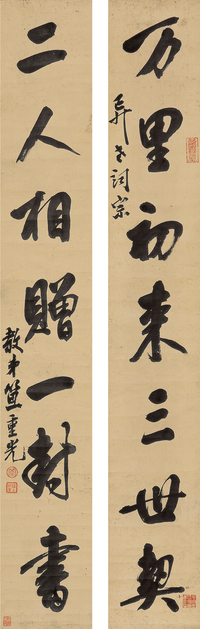 万里初来三世契
昇老詞宗
二人相贈一封書
教弟笪重光